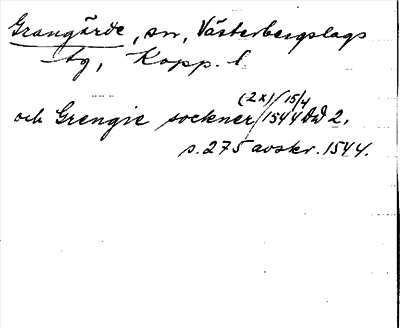 Grangärde, sn, Västerbergslags
tg, Kopp. l
och Grengie sockner (2x) 15/4 1544 DD 2,
s. 275 avskr. 1544.